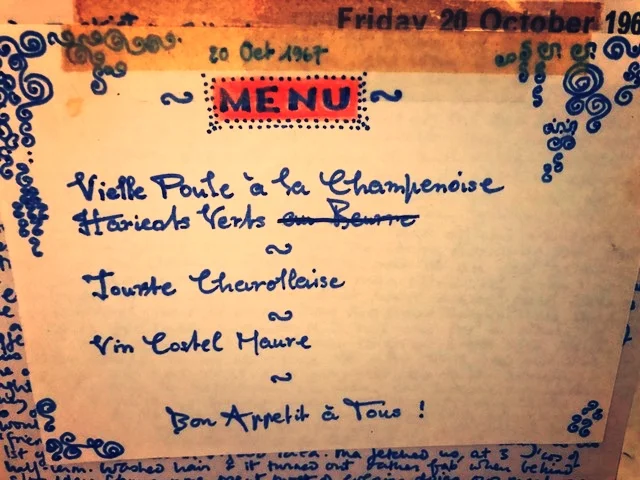 Friday 20 October 196
20 Oct 1967
~ MENU ~
Vielle Poule à la Champenoise
Haricots Verts au Beurre
~
Tourte Charollaise
~
Vin Castel Maure
~
Bon Appetit à Tous !
fetched us at 3
half-term. Washed hair & it turned out rather fab when behind